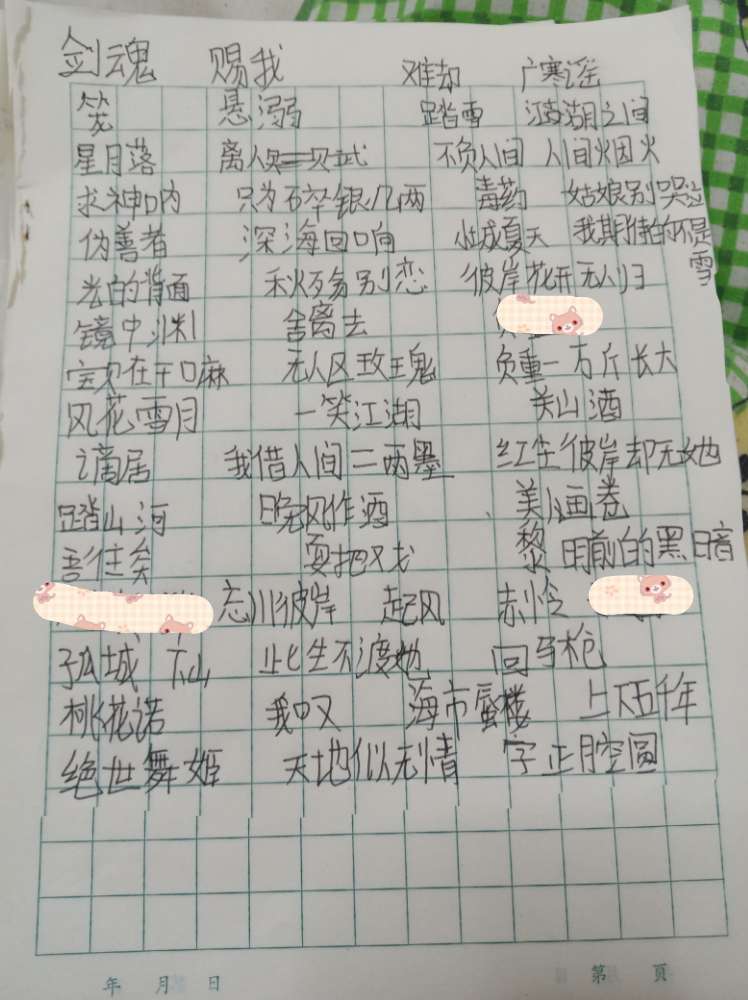 剑魂 赐我 难却 广寒谣
笼 悬溺 踏雪 江湖之间
星月落 离人 不负人间 人间烟火
求神呐 只为碎银几两 毒药 姑娘别哭泣
伪善者 深海回响 小城夏天 我期待的不是雪
光的背面 秋殇别恋 彼岸花开无人归
镜中 舍离去
宝贝在干嘛 无人区玫瑰 负重一万斤长大
风花雪月 一笑江湖 关山酒
谪居 我借人间二两墨 红尘彼岸却无她
踏山河 晚风作酒 美人画卷
吾往矣 耍把戏 黎明前的黑暗
忘川彼岸 起风 赤伶
孤城 下山 此生不渡她 回马枪
桃花诺 我叹 海市蜃楼 上下五千年
绝世舞姬 天地似无情 字正腔圆
年 月 日 第 頁